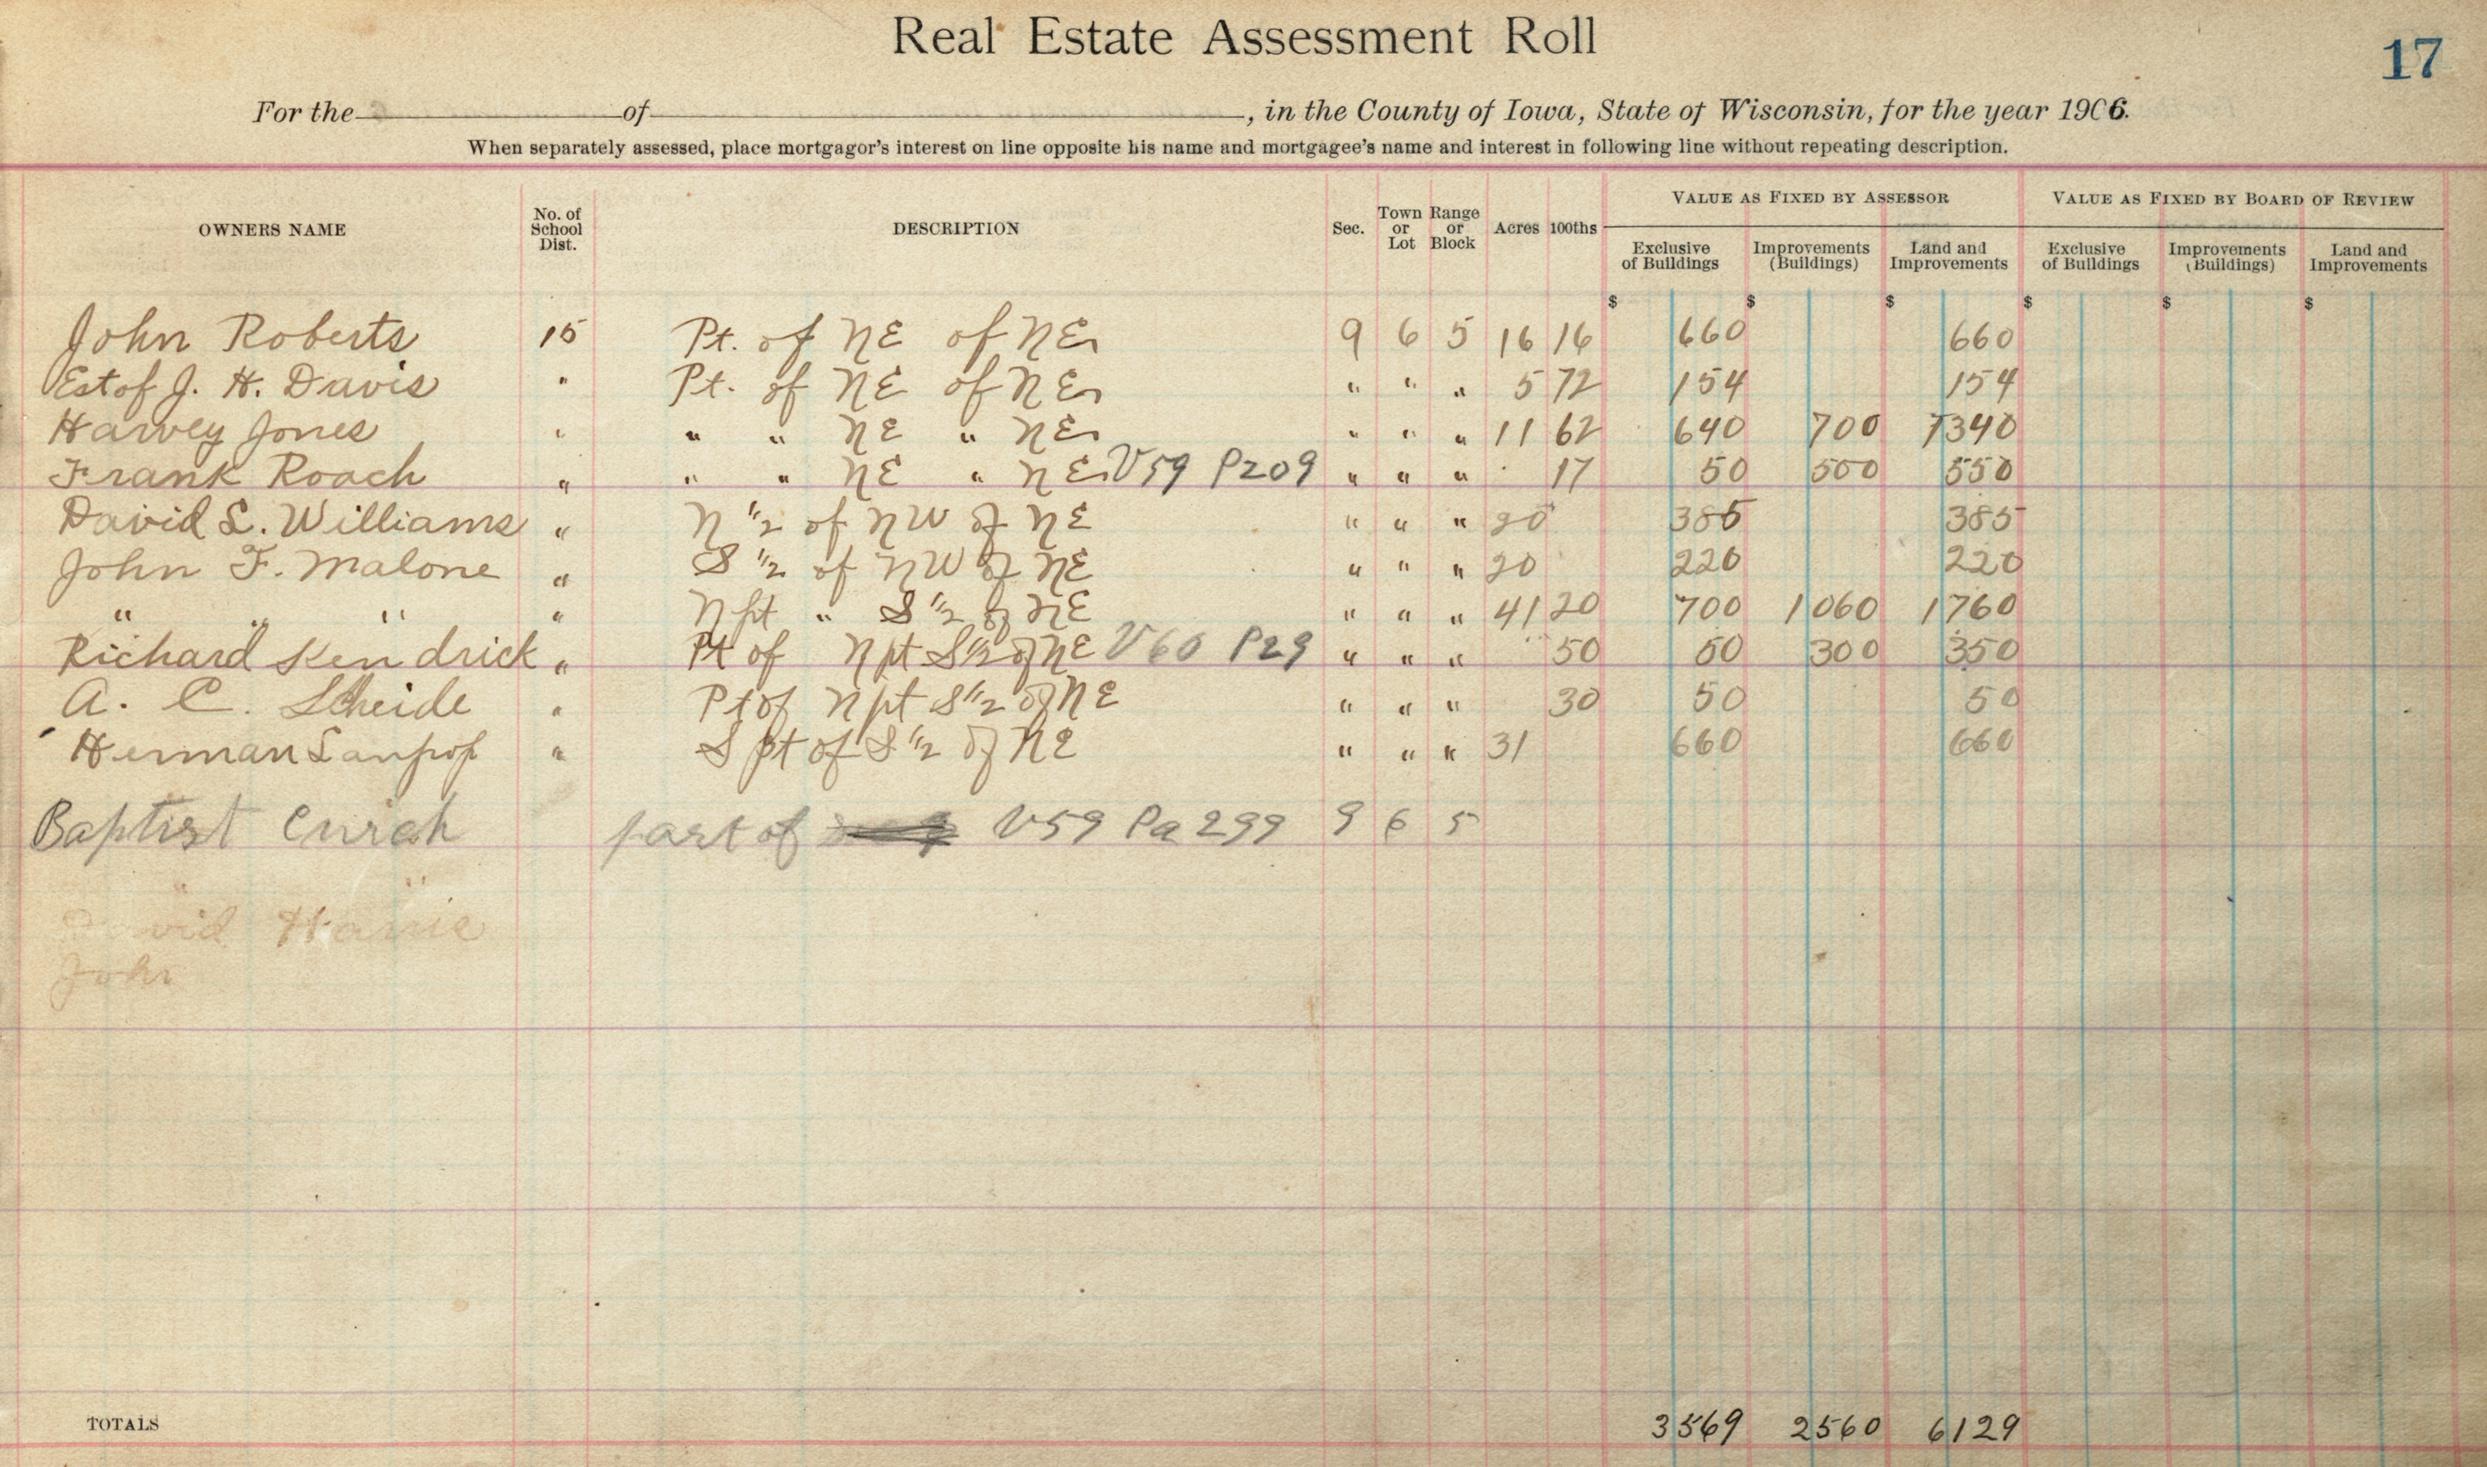 Real Estate Assessment Roll
17
For the of , in the County of Iowa, State of Wisconsin, for the year 1906.
When separately assessed, place mortgagor's interest on line opposite his name and mortgagee's name and interest in following line without repeating description.
OWNERS NAME No. of School Dist. DESCRIPTION Sec. Town or Lot Range or Block Acres 100ths VALUE AS FIXED BY ASSESSOR VALUE AS FIXED BY BOARD OF REVIEW
Exclusive of Buildings Improvements (Buildings) Land and Improvements Exclusive of Buildings Improvements (Buildings) Land and Improvements
$ $ $ $ $ $
John Roberts 15 Pt. of NE of NE 9 6 5 16 16 660 660
Est of J. H. Davis " Pt. of NE of NE " " " 5 72 154 154
Harvey Jones " " " NE " NE " " " 11 62 640 700 1340
Frank Roach " " " NE " NE V59 P209 " " " 17 50 500 550
David L. Williams " N 1/2 of NW of NE " " " 20 385 385
John F. Malone " S 1/2 of NW of NE " " " 20 220 220
" " " " N pt " S 1/2 of NE " " " 41 20 700 1060 1760
Richard Kendrick " Pt of N pt S 1/2 of NE V60 P29 " " " 50 50 300 350
A. C. Scheide " Pt of N pt S 1/2 of NE " " " 30 50 50
Herman " S pt of S 1/2 of NE " " " 31 660 660
Baptist Curch part of V59 Pa 299 9 6 5
" "
John
TOTALS 3569 2560 6129